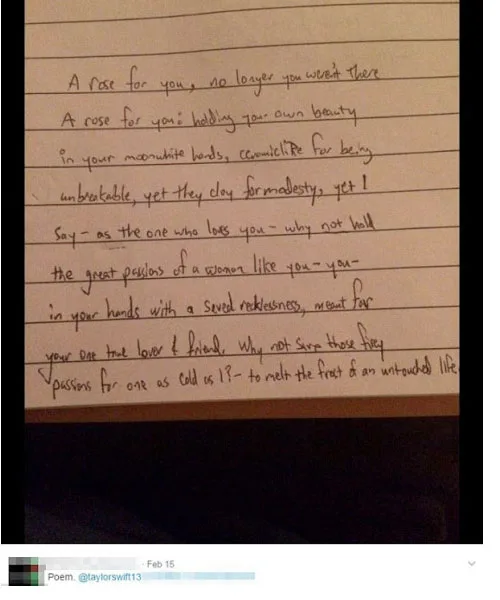 A rose for you, no longer you weren't there
A rose for you: holding your own beauty
in your moonwhite hands, ceramiclike for being
unbreakable, yet they clay for modesty, yet I
Say - as the one who loves you - why not hold
the great passions of a woman like you - you -
in your hands with a saved recklessness, meant for
your one true lover & friend. Why not those firey
passions for one as cold as I? - to melt the frost of an untouched life.
Feb 15
Poem. @taylorswift13